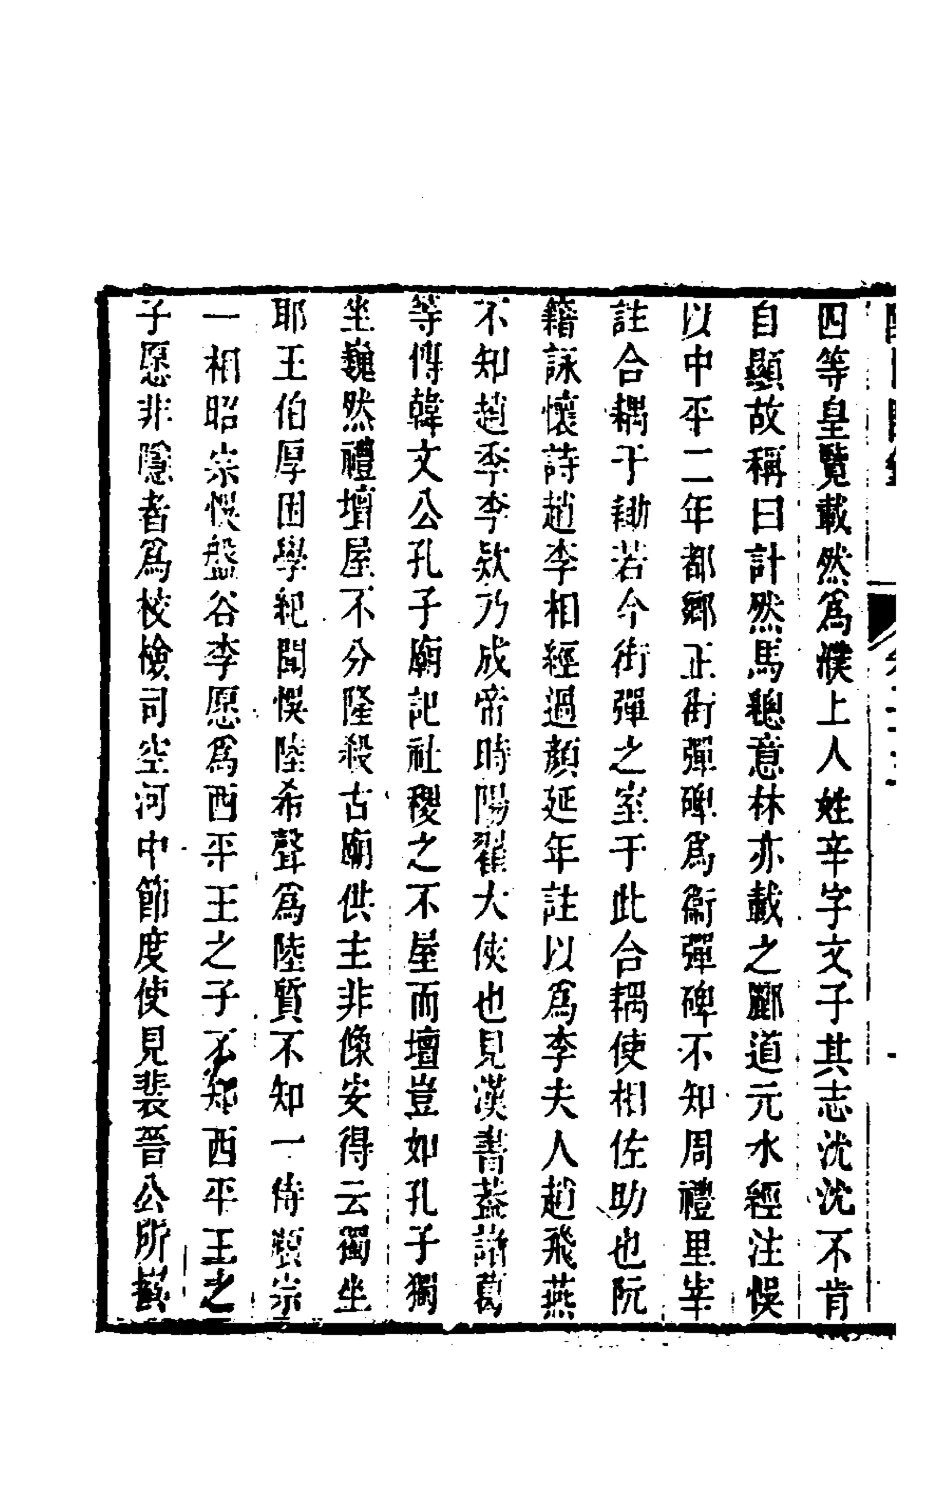 四等皇覽載然爲濮上人姓辛字文子其志沈沈不肯
自顯故稱曰計然馬總意林亦載之酈道元水經注悞
以中平二年都鄉正街彈碑爲衞彈碑不知周禮里宰
註合耦于耡若今街彈之室于此合耦使相佐助也阮
籍詠懷詩趙李相經過顏延年註以爲李夫人趙飛燕
不知趙季李欵乃成帝時陽翟大俠也見漢書蓋諸葛
等傳韓文公孔子廟記社稷之不屋而壇豈如孔子獨
坐巍然禮壇屋不分隆殺古廟供主非像安得云獨坐
耶王伯厚困學紀聞悞陸希聲爲陸質不知一侍順宗
一相昭宗悞盤谷李愿爲西平王之子不知西平王之
子愿非隱者爲校檢司空河中節度使見裴晉公所